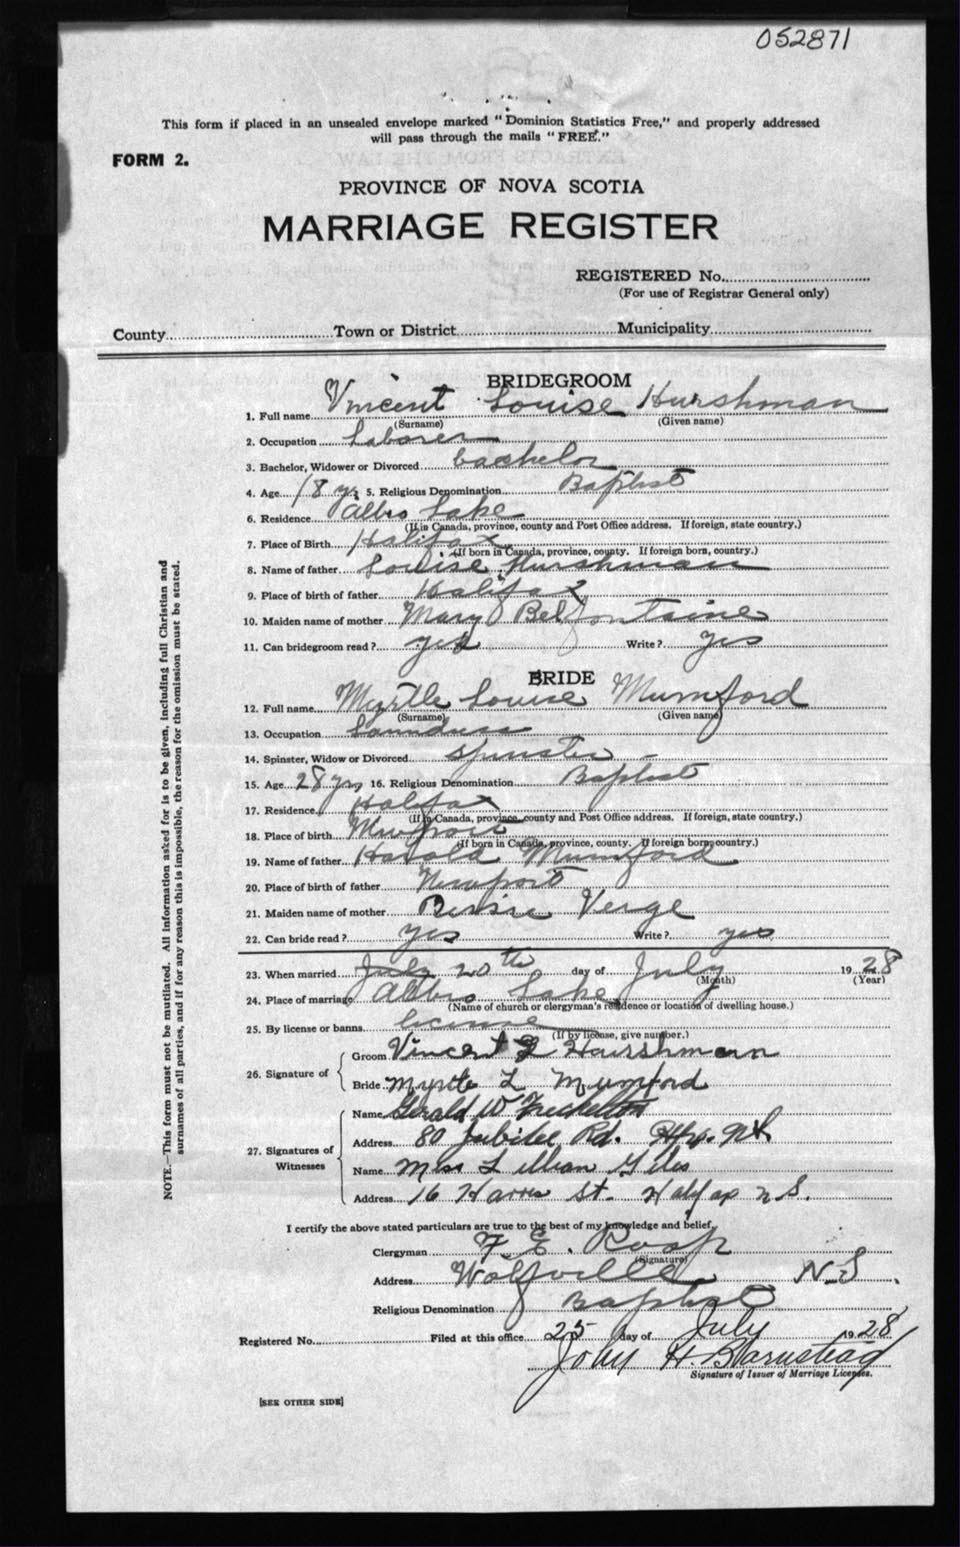 052871
This form if placed in an unsealed envelope marked "Dominion Statistics Free," and properly addressed
will pass through the mails "FREE."
FORM 2.
PROVINCE OF NOVA SCOTIA
MARRIAGE REGISTER
REGISTERED No.
(For use of Registrar General only)
County Town or District Municipality
BRIDEGROOM
1. Full name Vincent Louise Hurshman
(Surname) (Given name)
2. Occupation Laborer
3. Bachelor, Widower or Divorced bachelor
4. Age 18 yrs 5. Religious Denomination Baptist
6. Residence Albro Lake
(If in Canada, province, county and Post Office address. If foreign, state country.)
7. Place of Birth Halifax
(If born in Canada, province, county. If foreign born, country.)
8. Name of father Louise Hurshman
9. Place of birth of father Halifax
10. Maiden name of mother Mary Belfontaine
11. Can bridegroom read? yes Write? yes
BRIDE
12. Full name Myrtle Louise Mumford
(Surname) (Given name)
13. Occupation Laundress
14. Spinster, Widow or Divorced Spinster
15. Age 28 yrs 16. Religious Denomination Baptist
17. Residence Halifax
(If in Canada, province, county and Post Office address. If foreign, state country.)
18. Place of birth Newport
(If born in Canada, province, county. If foreign born, country.)
19. Name of father Harold Mumford
20. Place of birth of father Newport
21. Maiden name of mother Bessie Verge
22. Can bride read? yes Write? yes
23. When married July 20th day of July 1928
(Month) (Year)
24. Place of marriage Albro Lake
(Name of church or clergyman's residence or location of dwelling house.)
25. By license or banns license
(If by license, give number.)
26. Signature of Groom Vincent L Hurshman
Bride Myrtle L Mumford
27. Signatures of Witnesses Name Gerald W Freckelton
Address 80 Jubilee Rd. Hfx. NS
Name Miss Lillian Giles
Address 16 Harris St. Halifax N.S.
I certify the above stated particulars are true to the best of my knowledge and belief,
Clergyman F. E. Roop
(Signature)
Address Wolfville N.S.
Religious Denomination Baptist
Registered No. Filed at this office 25 day of July 1928
John H. Barnstead
Signature of Issuer of Marriage Licenses.
[SEE OTHER SIDE]
NOTE.—This form must not be mutilated. All information asked for is to be given, including full Christian and
surnames of all parties, and if for any reason this is impossible, the reason for the omission must be stated.